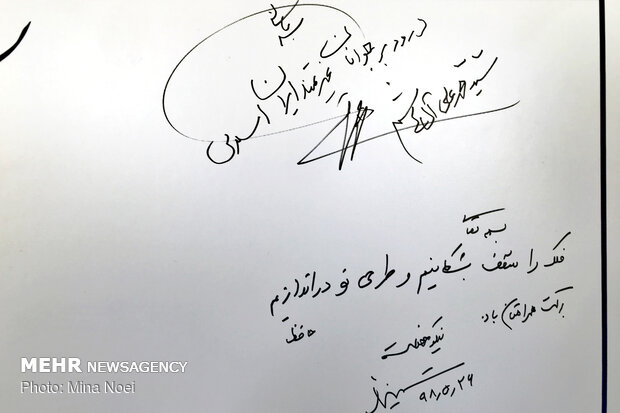 بسمه تعالی
درود بر جوانان
هنرمند ایران
اسلامی
سید محمد علی
بسمه تعالی
فلک را سقف بشکافیم و طرحی نو دراندازیم
حافظ
برکت همراهتان باد.
۹۸٫۵٫۲۶
MEHR NEWSAGENCY
Photo: Mina Noei